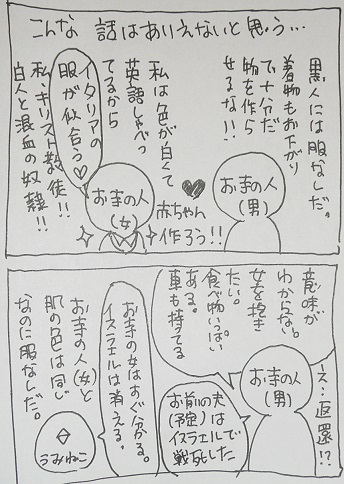 こんな 話はありえないと思う…
黒人には服なしだ。
着物もお下がり
で十分だ
物を作ら
せるな!!
お寺の人
(男)
赤ちゃん
作ろう!!
私は色が白くて
英語しゃべっ
てるから
イタリアの
服が似合う♡
お寺の人
(女)
私、キリスト教徒!!
白人と混血の奴隷!!
え…返還!?
意味が
わからない。
女を抱き
たい。
食べ物いっぱい
ある。
車も持てる
お寺の人
(男)
お前の夫
(予定)は
イスラエルで
戦死した
お寺の女はすぐ分かる。
イスラエルは消える。
お寺の人(女)と
肌の色は同じ
なのに服なしだ。
うみねこ